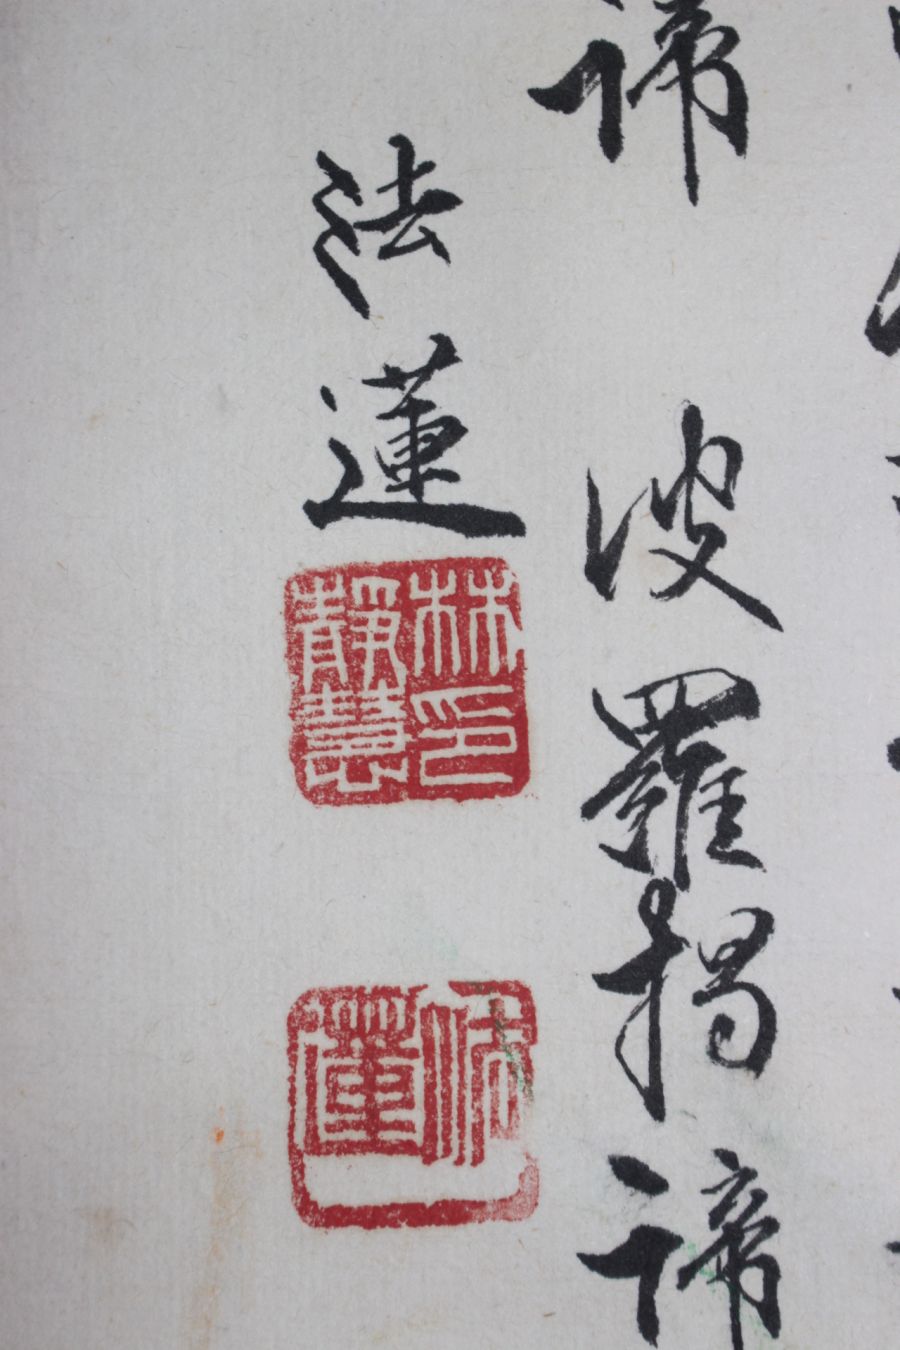 諦　波羅揭諦
法蓮
林印靜慧
法蓮